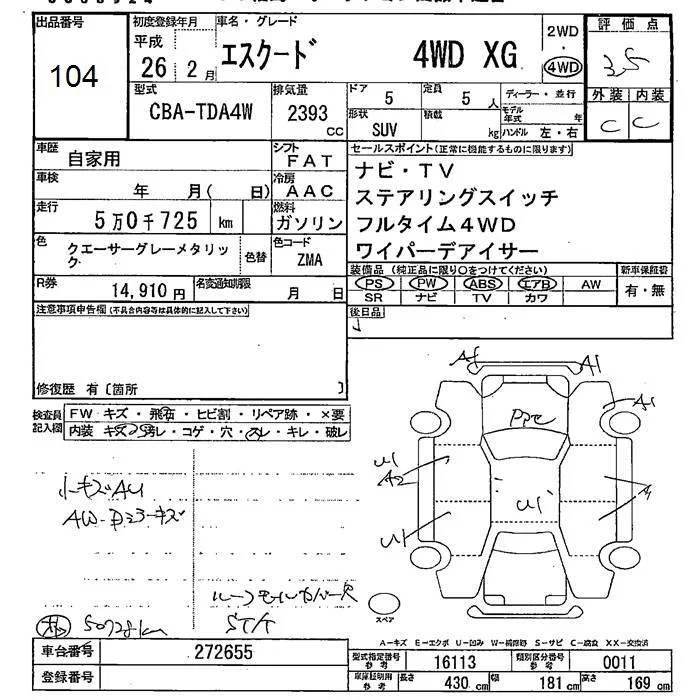 出品番号 初度登録年月 車名・グレード 評価点
104 平成 26年 2月 エスクード 4WD XG 2WD・4WD 3.5
型式 排気量 ドア 定員 ディーラー・並行 外装 内装
CBA-TDA4W 2393 cc 5 5人 モデル年式 年 C C
形状 積載
SUV kg ハンドル 左・右
車歴 自家用 シフト FAT セールスポイント(正常に機能するものに限ります)
車検 年 月( 日) 冷房 AAC ナビ・TV
走行 5万0千725 km 燃料 ガソリン ステアリングスイッチ
フルタイム4WD
色 クエーサーグレーメタリック 色替 色コード ZMA ワイパーデアイサー
装備品(純正品に限り○をつけてください) 新車保証書
R券 14,910円 名変通知期限 月 日 PS PW ABS エアB AW 有・無
SR ナビ TV カワ
注意事項申告欄(不具合内容等は具体的に記入して下さい) 後日品
修復歴 有〔箇所 〕
検査員記入欄 FW キズ・飛石・ヒビ割・リペア跡・×要
内装 キズ・汚レ・コゲ・穴・スレ・キレ・破レ
A1 A1
A1
PPC
U1
A2 U1
U1
小キズAU
AW・ドアミラーキズ
ルーフモールカバー欠
50728km STK
スペア
A-キズ E-エクボ U-凹み W-補修跡 S-サビ C-腐食 XX-交換済
車台番号 272655 型式指定番号 参考 16113 類別区分番号 参考 0011
登録番号 車庫証明用 参考 長さ 430 cm 幅 181 cm 高さ 169 cm